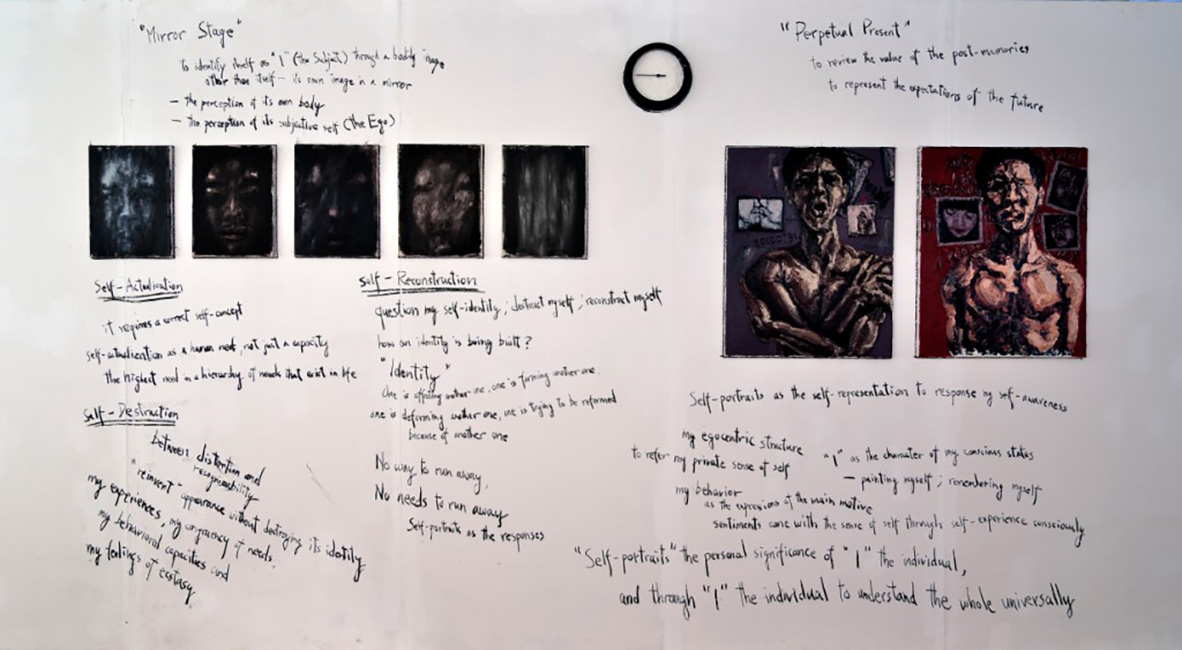 "Mirror Stage"
To identify itself as "I" (the Subject) through a bodily image
other than itself – its own image in a mirror
– the perception of its own body
– the perception of its subjective self (the Ego)
"Perpetual Present"
to review the value of the post-memories
to represent the expectations of the future
Self-Actualization
it requires a correct self-concept
self-actualization as a human need, not just a capacity
the highest need in a hierarchy of needs that exist in life
Self-Destruction
between distortion and
recognizability
"reinvent" appearance without destroying its identity
my experiences, my conspiracy of needs,
my behavioral capacities and
my feelings of ecstasy
Self-Reconstruction
question my self-identity; destruct myself; reconstruct myself
how an identity is being built?
"Identity"
One is affecting another one, one is forming another one,
one is deforming another one, one is trying to be reformed
because of another one
No way to run away,
No needs to run away
Self-portraits as the responses
Self-portraits as the self-representation to response my self-awareness
my egocentric structure
to refer my private sense of self
my behavior
as the expressions of the main motive
"I" as the character of my conscious status
– painting myself; remembering myself
sentiments came with the sense of self through self-experience consciously
"Self-portraits" the personal significance of "I" the individual,
and through "I" the individual to understand the whole universally